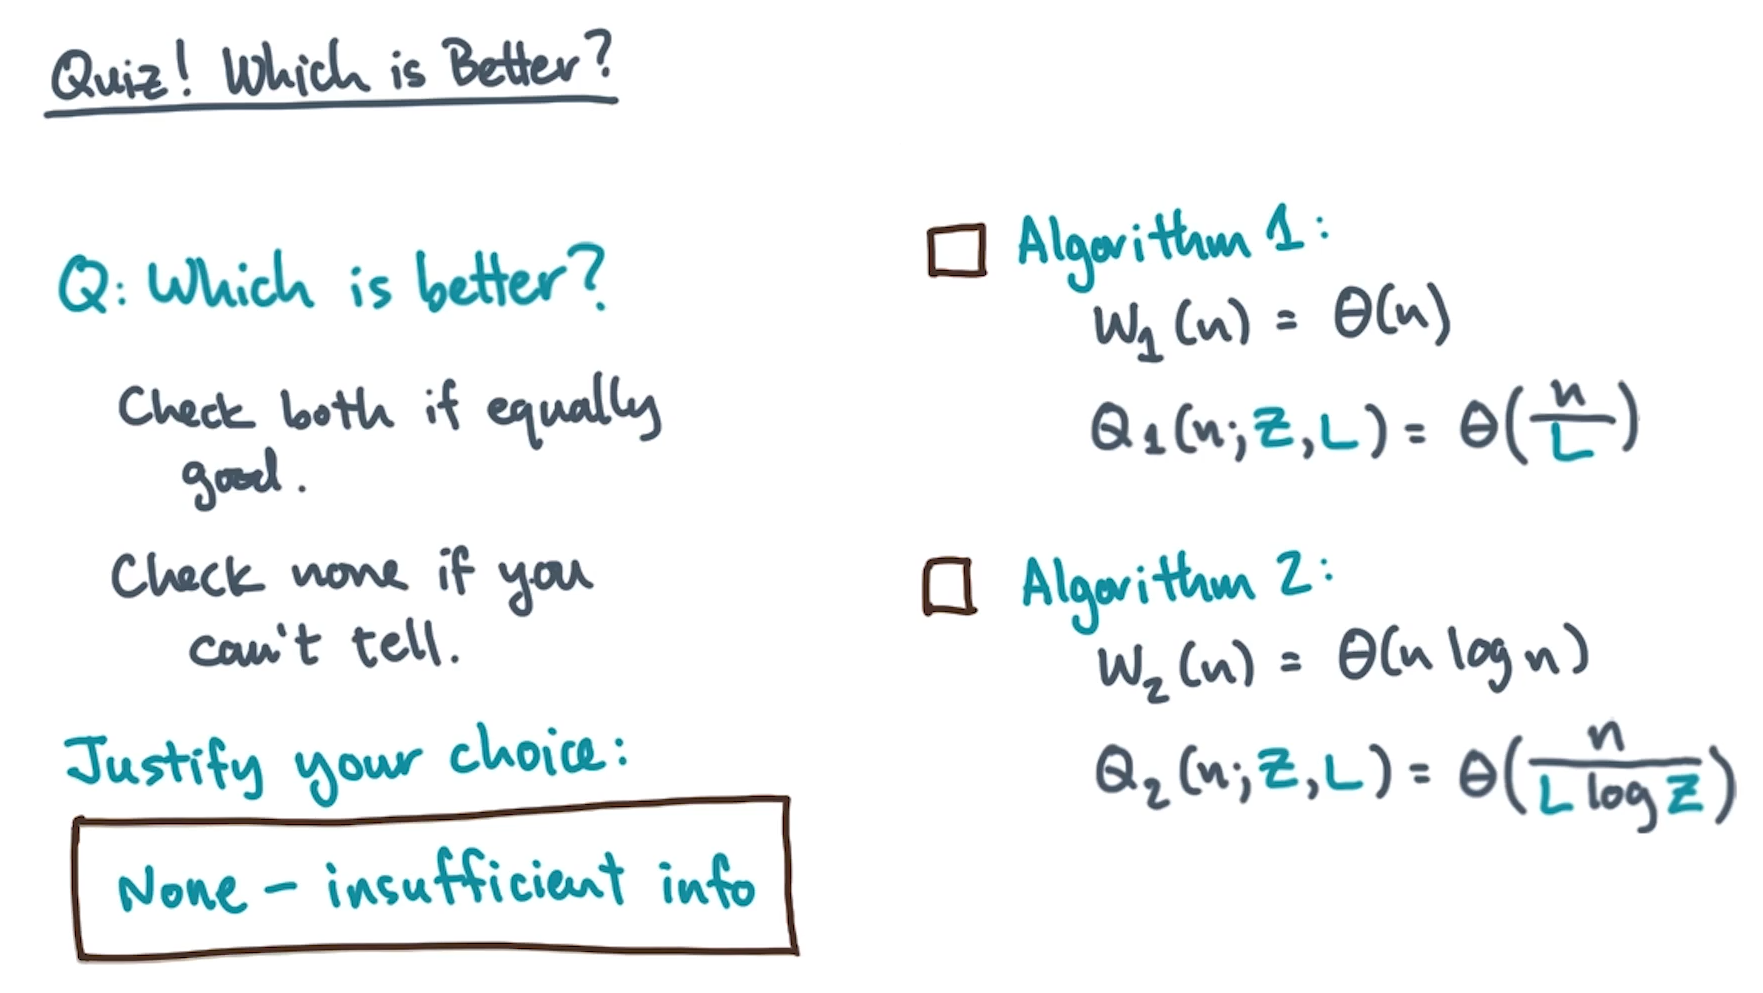 Quiz! Which is Better?
Q: Which is better?
Check both if equally
good.
Check none if you
can't tell.
Justify your choice:
None – insufficient info
Algorithm 1:
W₁(n) = Θ(n)
Q₁(n; Z, L) = Θ(n/L)
Algorithm 2:
W₂(n) = Θ(n log n)
Q₂(n; Z, L) = Θ(n/(L log Z))